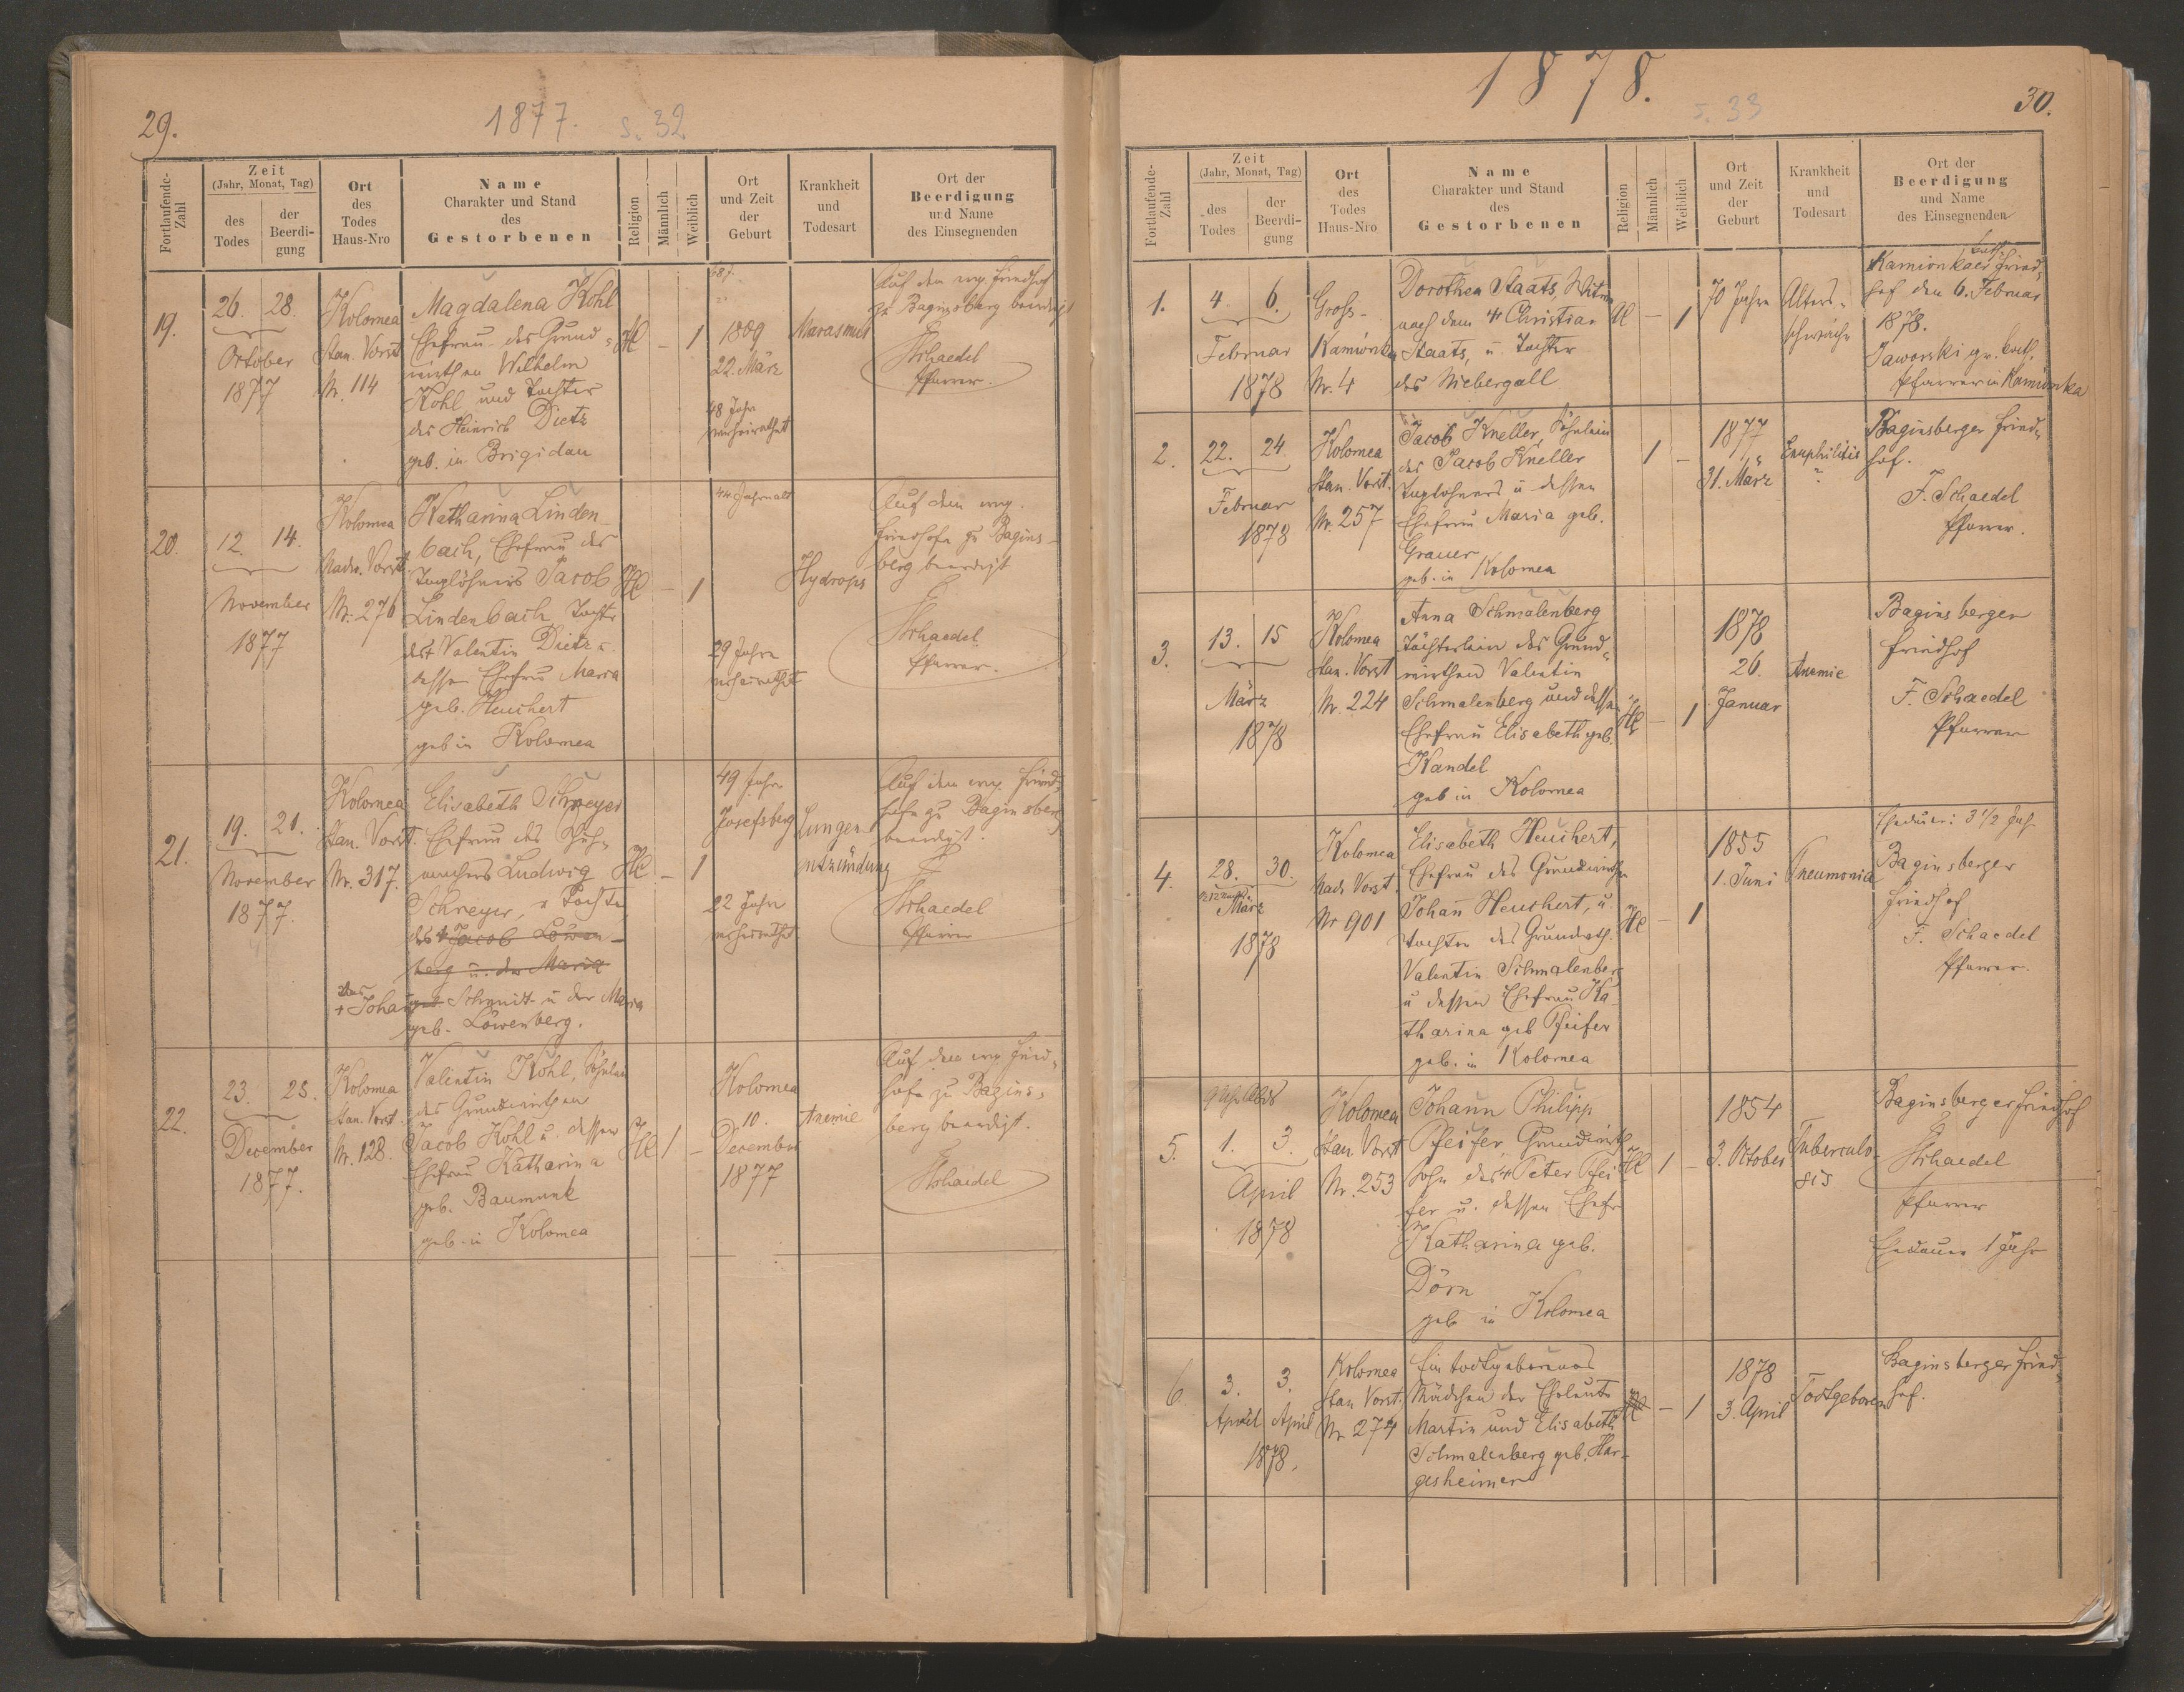 29.
1877.
s. 32
Fortlaufende-Zahl
Zeit
(Jahr, Monat, Tag)
des Todes
der Beerdi-gung
Ort
des
Todes
Haus-Nro
Name
Charakter und Stand
des
Gestorbenen
Religion
Männlich
Weiblich
Ort
und Zeit
der
Geburt
Krankheit
und
Todesart
Ort der
Beerdigung
und Name
des Einsegnenden
19.
26. 28.
October
1877
Kolomea
Stan. Vorst
Nr. 114
Magdalena Kohl
Ehefrau des Grund-
wirthen Wilhelm
Kohl und Tochter
des Heinrich Dietz
geb. in Brigidau
HC
— 1
1809
22. März
48 Jahre
verheirathet
Marasmus
Auf dem evg. Friedhof
zu Baginsberg beerdigt
Schaedel
Pfarrer.
20.
12. 14.
November
1877
Kolomea
Nadw. Vorst.
Nr. 276
Katharina Linden-
bach, Ehefrau des
Taglöhners Jacob
Lindenbach Tochter
des † Valentin Dietz u.
dessen Ehefrau Maria
geb. Heuchert
geb in Kolomea
HC
— 1
44 Jahre alt
29 Jahre
verheirathet
Hydrops
Auf dem evg.
Friedhofe zu Bagins-
berg beerdigt
Schaedel
Pfarrer.
21.
19. 21.
November
1877.
Kolomea
Stan. Vorst.
Nr. 317.
Elisabeth Schreyer
Ehefrau des Schuh-
machers Ludwig
Schreyer, u Tochter
des † Jacob Löwen-
berg u. der Maria
des
† Johan geb Schmidt u der Maria
geb. Löwenberg.
HC
— 1
49 Jahre
Josefsberg
22 Jahre
verheirathet
Lungen-
entzündung
Auf dem evg. Fried-
hofe zu Baginsberg
beerdigt.
Schaedel
Pfarrer
22.
23. 25.
December
1877.
Kolomea
Stan. Vorst.
Nr. 128.
Valentin Kohl, Söhnlein
des Grundwirthen
Jacob Kohl u. dessen
Ehefrau Katharina
geb. Baumunk
geb. in Kolomea
HC
1 —
Kolomea
10.
December
1877
Anemie
Auf dem evg Fried-
hofe zu Bagins-
berg beerdigt.
Schaedel
1878.
s. 33
30.
Fortlaufende-Zahl
Zeit
(Jahr, Monat, Tag)
des Todes
der Beerdi-gung
Ort
des
Todes
Haus-Nro
Name
Charakter und Stand
des
Gestorbenen
Religion
Männlich
Weiblich
Ort
und Zeit
der
Geburt
Krankheit
und
Todesart
Ort der
Beerdigung
und Name
des Einsegnenden
1.
4. 6.
Februar
1878
Gross-
Kamionka
Nr. 4
Dorothea Staats, Witwe
nach dem † Christian
Staats, u. Tochter
des Niebergall
— 1
70 Jahre
Alters-
schwäche
Kamionkaer Fried-
hof den 6. Februar
1878.
Jaworski gr. cath.
Pfarrer in Kamionka
2.
22. 24.
Februar
1878
Kolomea
Stan. Vorst.
Nr. 257
Jacob Kneller, Söhnlein
des Jacob Kneller
Taglöhners u dessen
Ehefrau Maria geb.
Grauer
geb. in Kolomea
1 —
1877
31. März
Enxphilitis
?
Baginsberger Fried-
hof.
F. Schaedel
Pfarrer.
3.
13. 15
März
1878
Kolomea
Stan. Vorst
Nr. 224
Anna Schmalenberg
Töchterlein des Grund-
wirthen Valentin
Schmalenberg und dessen
Ehefrau Elisabeth geb.
Kandel
geb in Kolomea
HC
— 1
1878
26.
Januar
Anemie
Baginsberger
Friedhof
F. Schaedel
Pfarrer
4.
28. 30.
März
1878
Kolomea
Nadw Vorst.
Nr 901
Elisabeth Heuchert,
Ehefrau des Grundwirthen
Johan̄ Heuchert, u
Tochter des Grundwth.
Valentin Schmalenber
u dessen Ehefrau Ka-
tharina geb Pfeifer
geb. in Kolomea
HC
— 1
1855
1. Juni
Pneumonia
Ehedauer: 3 1/2 Jah
Baginsberger
Friedhof
F. Schaedel
Pfarrer.
5.
9 Uhr Abds
1. 3.
April
1878
Kolomea
Stan Vorst
Nr. 253
Johann Philipp
Pfeifer, Grundwirth
Sohn des † Peter Pfei
fer u. dessen Ehefr
Katharina geb.
Dörn
geb in Kolomea
HC
1 —
1854
3. October
Tuberculo-
sis
Baginsberger Friedhof
Schaedel
Pfarrer
Ehedauer 1 Jahr
6.
3. 3.
April April
1878.
Kolomea
Stan Vorst.
Nr 274
Ein todtgeborenes
Mädchen der Eheleute
Martin und Elisabeth
Schmalenberg geb. Har-
gesheimer
HC
— 1
1878
3. April
Todtgeboren
Baginsberger Fried-
hof.